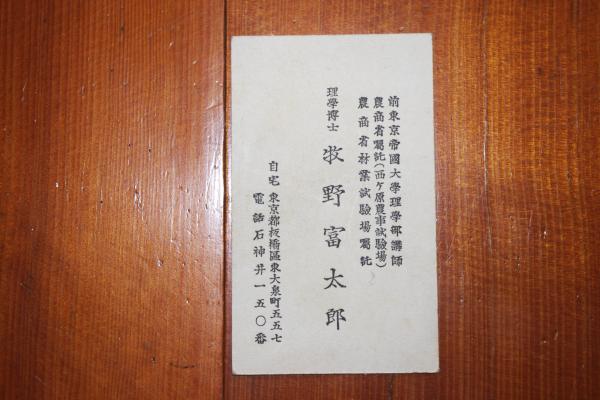 前東京帝國大學理學部講師
農商省囑託(西ケ原農事試驗場)
農商省林業試驗場囑託
理學博士 牧野富太郎
自宅 東京都板橋區東大泉町五五七
電話石神井一五〇番